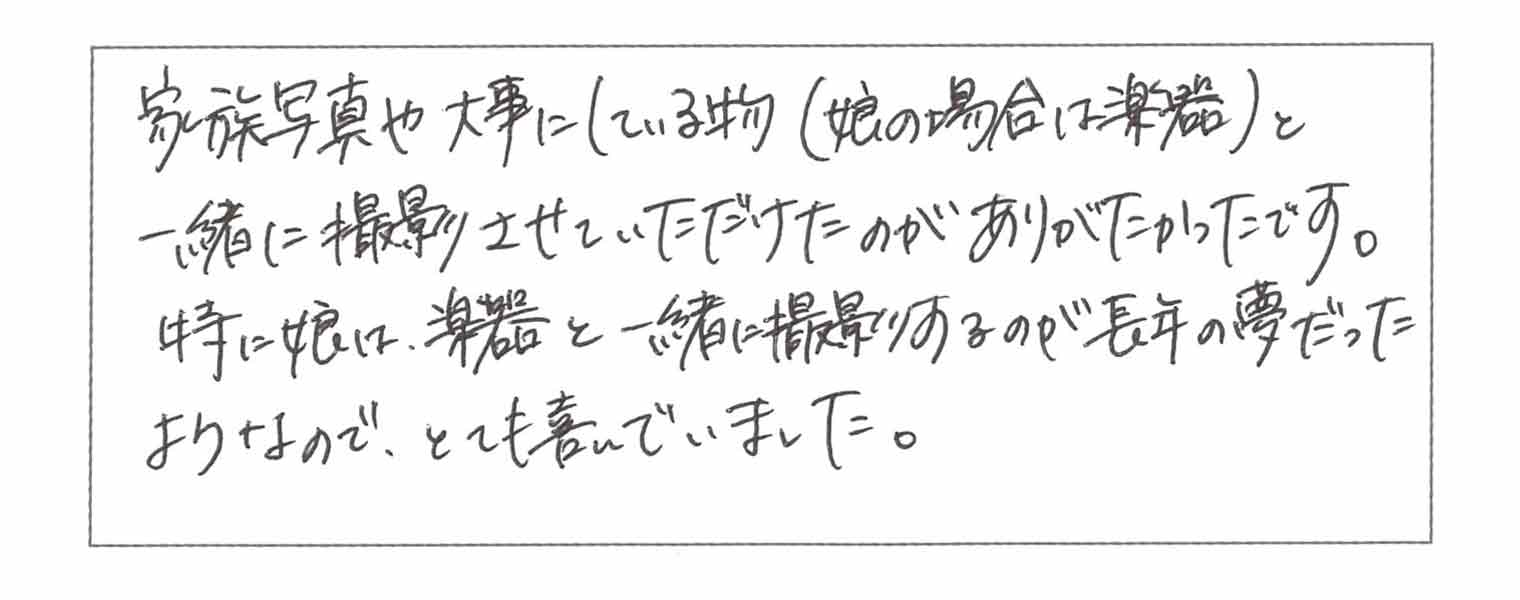 家族写真や大事にしている物(娘の場合は楽器)と
一緒に撮影させていただけたのがありがたかったです。
特に娘は、楽器と一緒に撮影するのが長年の夢だった
ようなので、とても喜んでいました。